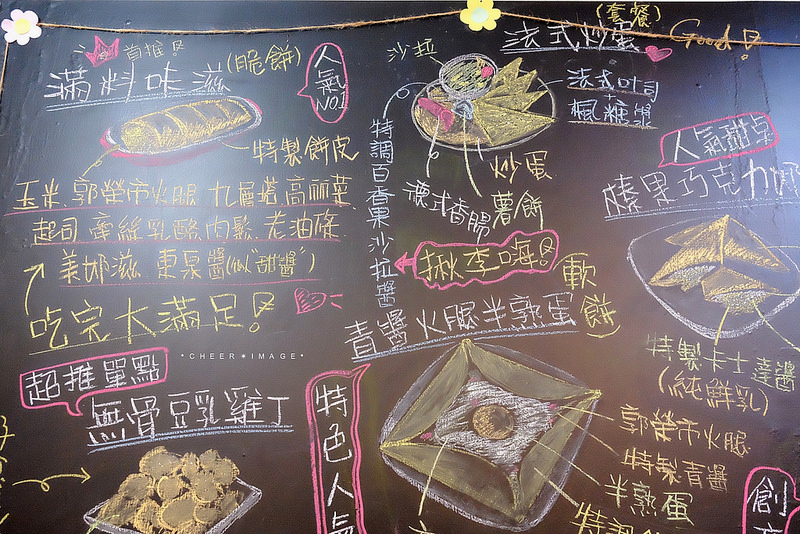 首推
滿料味滋(脆餅)
人氣NO1
特製餅皮
玉米.郭榮市火腿.九層塔.高麗菜
起司.牽絲乳酪.肉鬆.老油條
美奶滋.東泉醬(似"甜醬")
吃完大滿足!
*CHEER*IMAGE*
超推單點
無骨豆乳雞丁
(套餐)
法式炒蛋
Good!
沙拉
法式吐司
楓糖漿
炒蛋
薯餅
德式香腸
特調百香果沙拉醬
揪李嗨!
軟餅
青醬火腿半熟蛋
特色人氣
郭榮市火腿
特製青醬
半熟蛋
人氣甜點
榛果巧克力
特製卡士達醬
(純鮮乳)
創